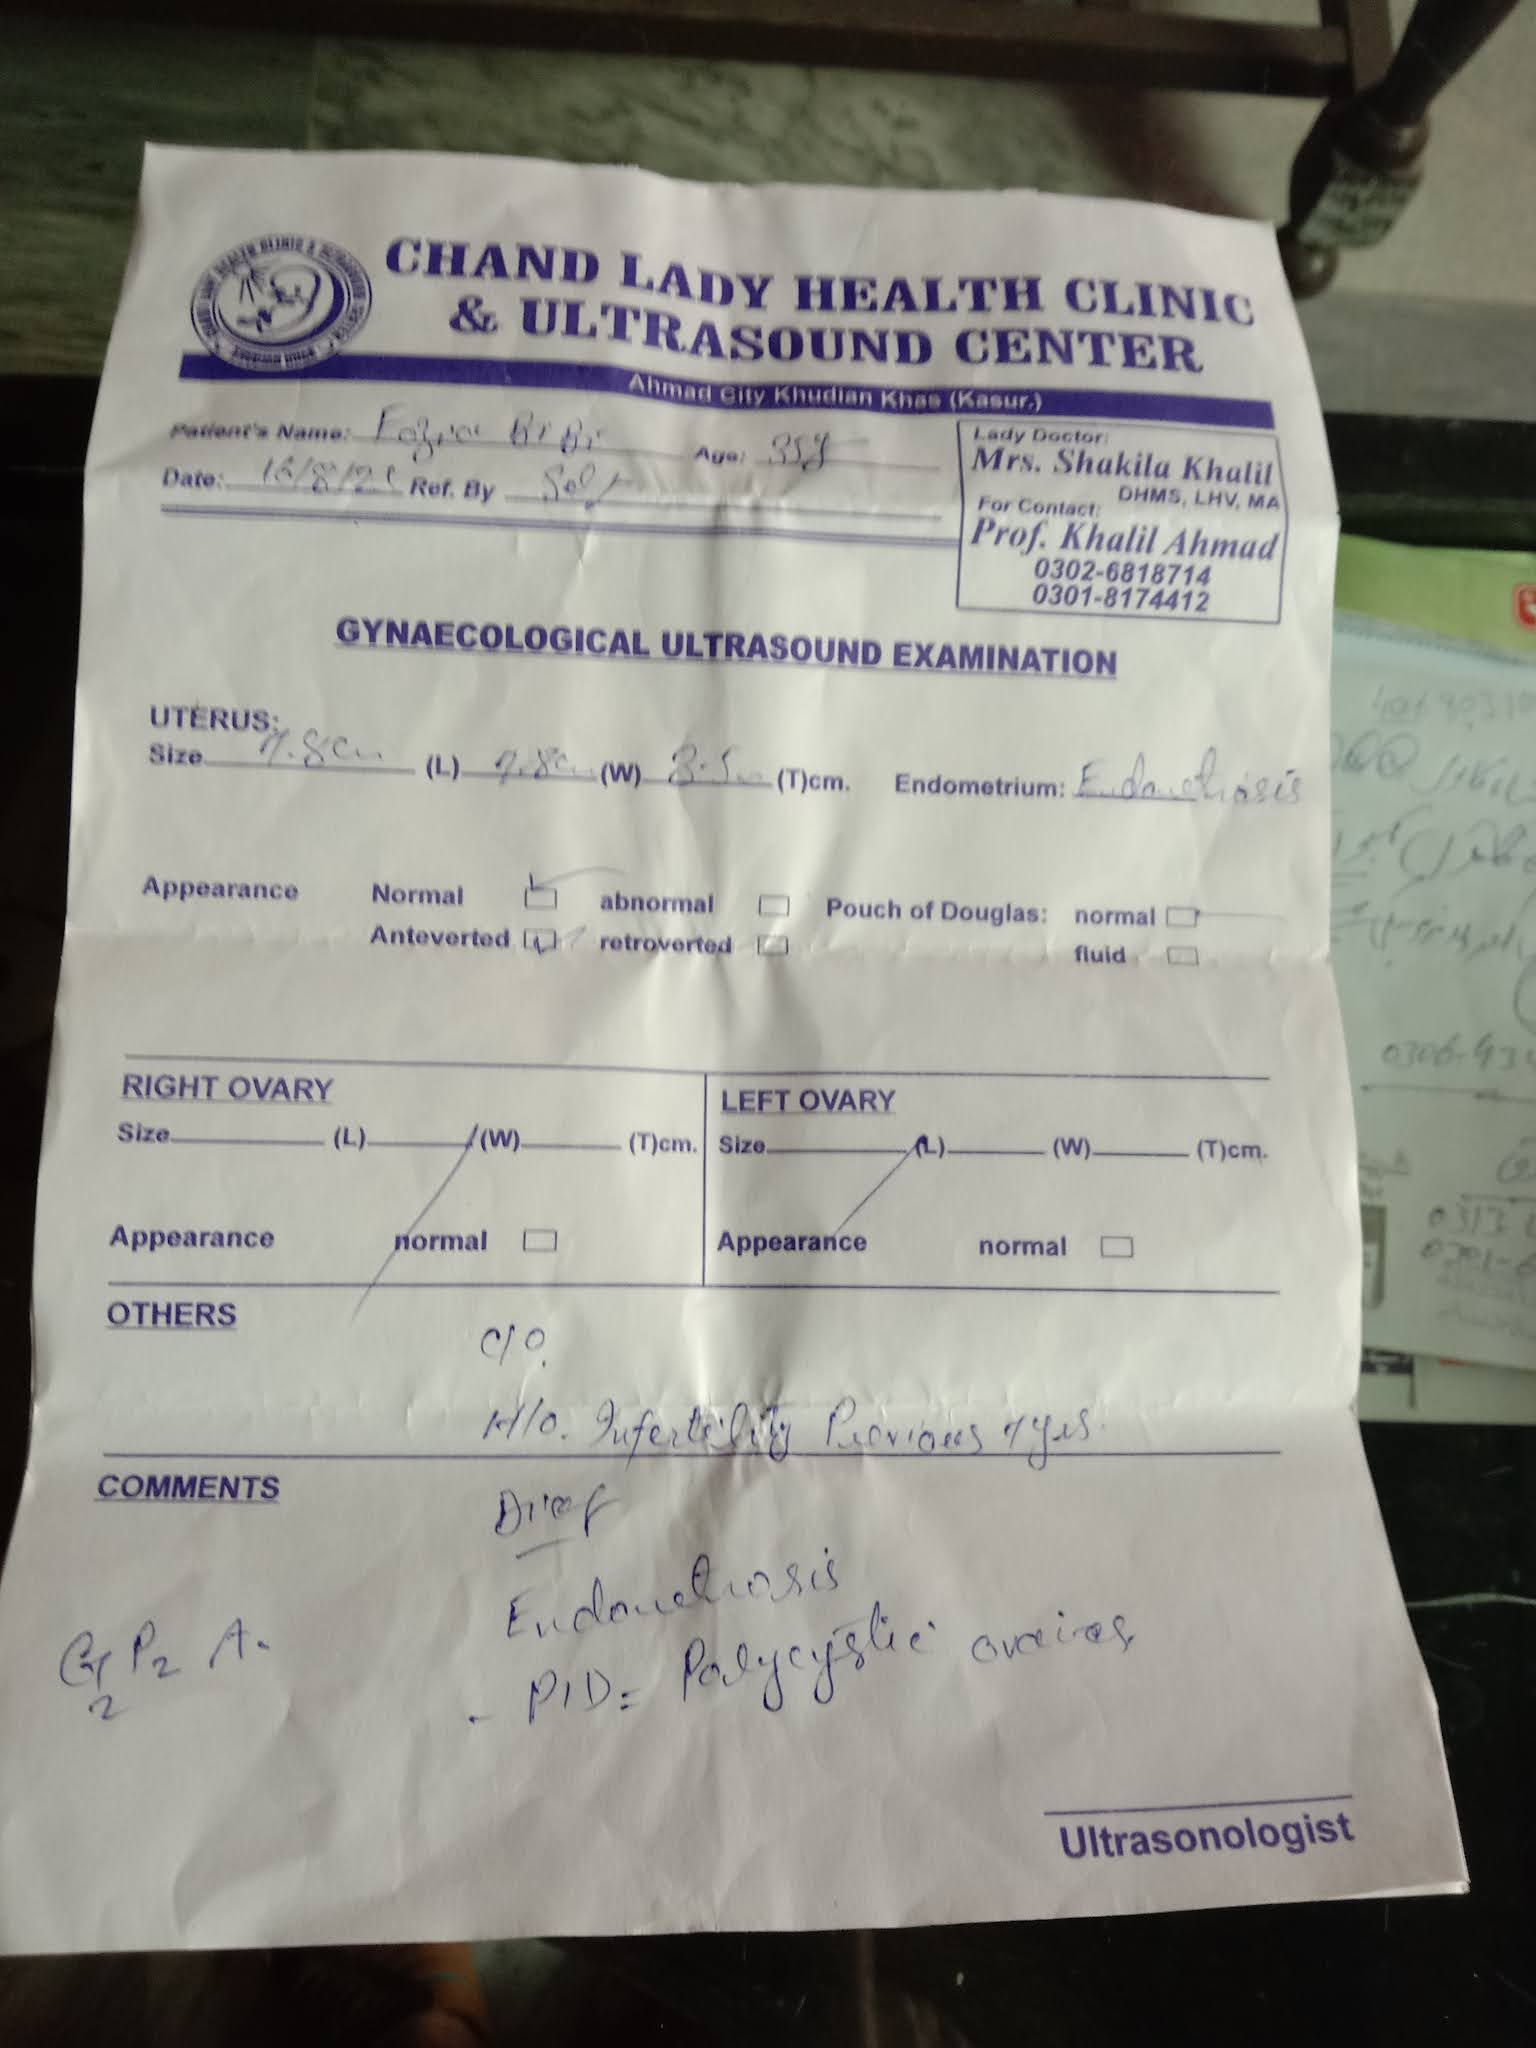 CHAND LADY HEALTH CLINIC
& ULTRASOUND CENTER
Ahmad City Khudian Khas (Kasur.)
Patient's Name: Bibi Age: 35y
Date: Ref. By Self
Lady Doctor:
Mrs. Shakila Khalil
DHMS, LHV, MA
For Contact:
Prof. Khalil Ahmad
0302-6818714
0301-8174412
GYNAECOLOGICAL ULTRASOUND EXAMINATION
UTERUS:
Size (L) (W) (T)cm. Endometrium: Endomethosis
Appearance Normal abnormal Pouch of Douglas: normal
Anteverted retroverted fluid
RIGHT OVARY
Size (L) (W) (T)cm.
Appearance normal
LEFT OVARY
Size (L) (W) (T)cm.
Appearance normal
OTHERS
C/O.
H/O. Infertility Previous yrs.
COMMENTS
Endomethosis
G2 P2 A.
- PID= Polycystic
Ultrasonologist